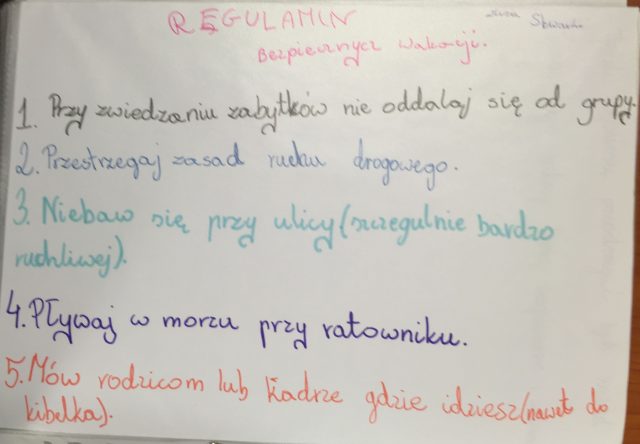 REGULAMIN
Bezpiecznych wakacji.
1. Przy zwiedzaniu zabytków nie oddalaj się od grupy.
2. Przestrzegaj zasad ruchu drogowego.
3. Niebaw się przy ulicy (szczegulnie bardzo
ruchliwej).
4. Pływaj w morzu przy ratowniku.
5. Mów rodzicom lub kadrze gdzie idziesz (nawet do
kibelka).